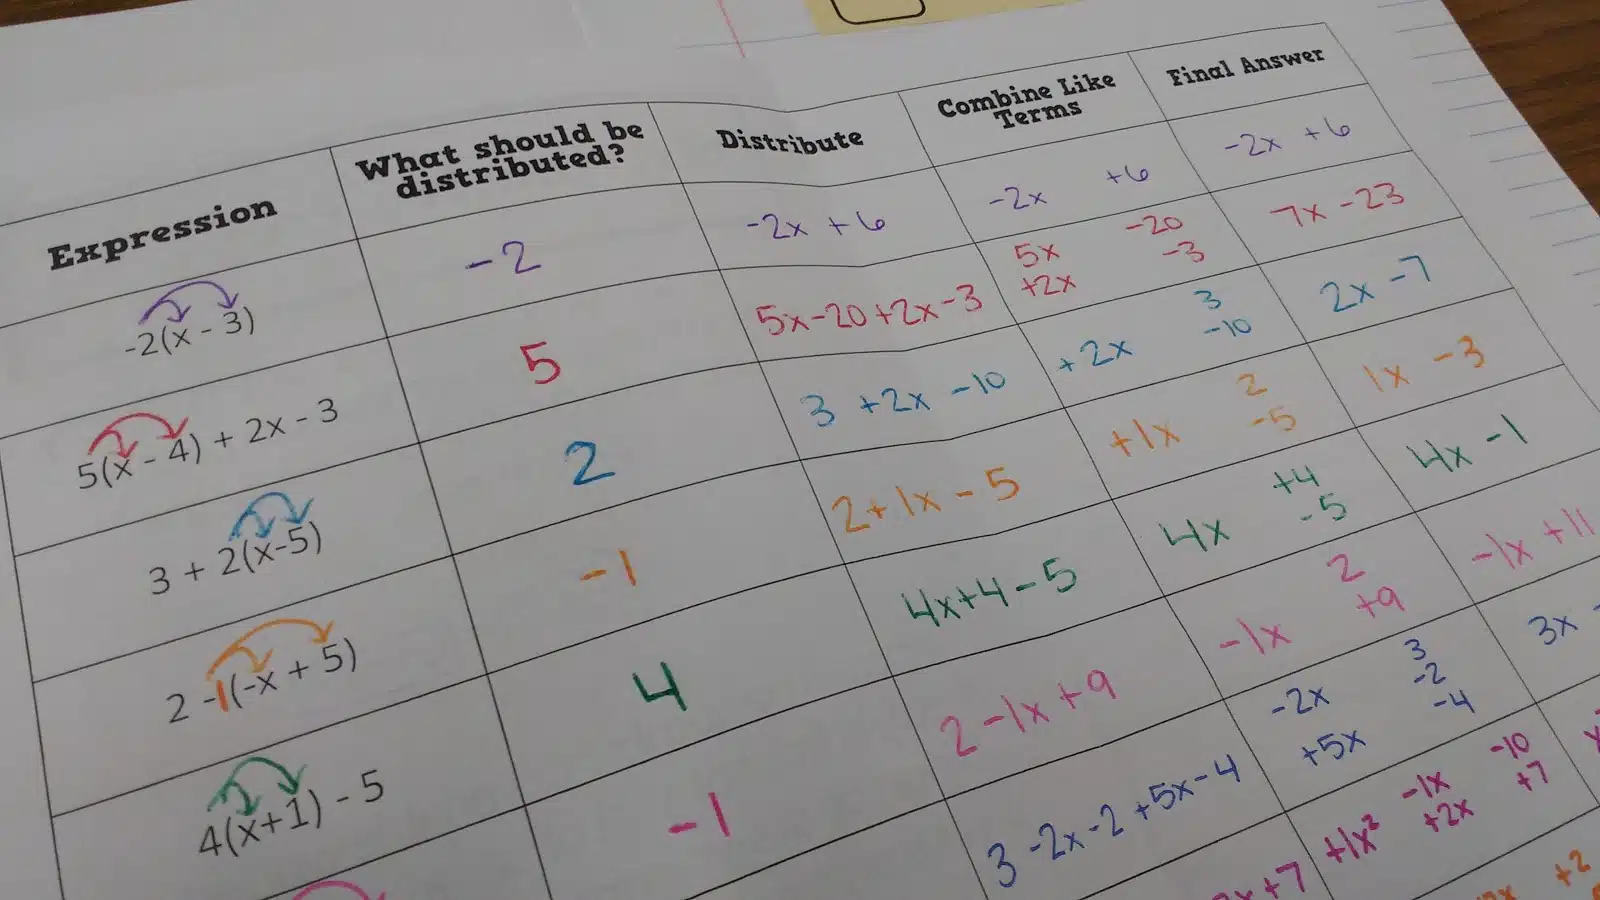 Expression What should be distributed? Distribute Combine Like Terms Final Answer
-2(x - 3) -2 -2x + 6 -2x +6 -2x +6
5(x - 4) + 2x - 3 5 5x-20+2x-3 5x -20 +2x -3 7x -23
3 + 2(x-5) 2 3 +2x -10 +2x 3 -10 2x -7
2 -1(-x + 5) -1 2+1x-5 +1x 2 -5 1x -3
4(x+1) - 5 4 4x+4-5 4x +4 -5 4x -1
-1 2-1x+9 -1x 2 +9 -1x +11
3-2x-2+5x-4 -2x 3 -2 +5x -4 3x
+7 +1x² -1x -10 +2x +7
+2